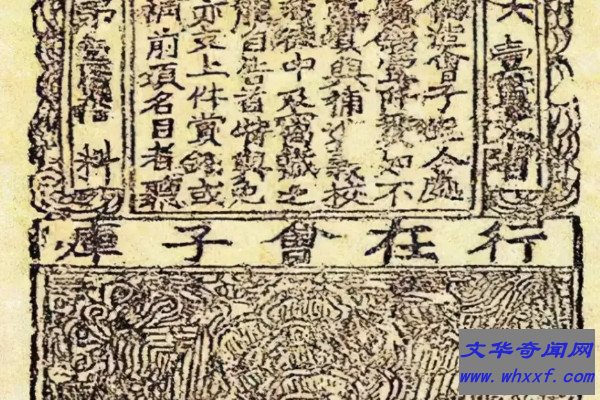 大壹貫文省
偽造會子犯人處
賞錢壹阡貫如不
賞與補進義校
徒中及窩藏之
能自告首特與免
亦支上件賞錢或
補前項名目者聽
第料
行在會子庫
文华奇闻网
www.whxxf.com